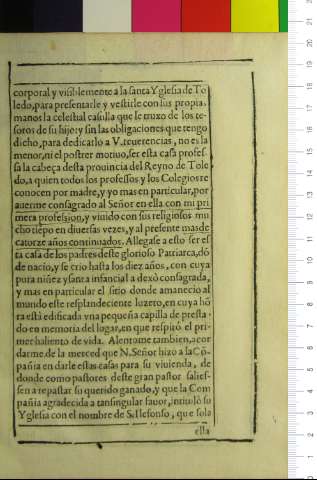 corporal y visiblemente a la santa Yglesia de To
ledo, para presentarle y vestirle con sus propia,
manos la celestial casulla que le truxo de los te-
soros de su hijo: y sin las obligaciones que tengo
dicho, para dedicarlo a V. reuerencias, no es la
menor, ni el postrer motiuo, ser esta casa profes-
sa la cabeça desta prouincia del Reyno de Tole
do, a quien todos los professos y los Colegios re
conocen por madre, y yo mas en particular, por
auerme consagrado al Señor en ella con mi pri
mera profession, y viuido con sus religiosos mu
cho tiẽpo en diuersas vezes, y al presente mas de
catorze años continuados. Allegase a esto ser es
ta casa de los padres deste glorioso Patriarca, dõ
de nacio, y se crio hasta los diez años, con cuya
pura niñez y santa infancia la dexò consagrada,
y mas en particular el sitio donde amanecio al
mundo este resplandeciente luzero, en cuya hõ
ra està edificada vna pequeña capilla de presta-
do en memoria del lugar, en que respirò el pri-
mer haliento de vida. Alentome tambien, acor
darme de la merced que N. Señor hizo a la Cõ-
pañia en darle estas casas para su viuienda, de
donde como pastores deste gran pastor salies-
sen a repastar su querido ganado, y que la Com
pañia agradecida a tan singular fauor, intitulò su
Yglesia con el nombre de S. Ilefonso, que sola
ella